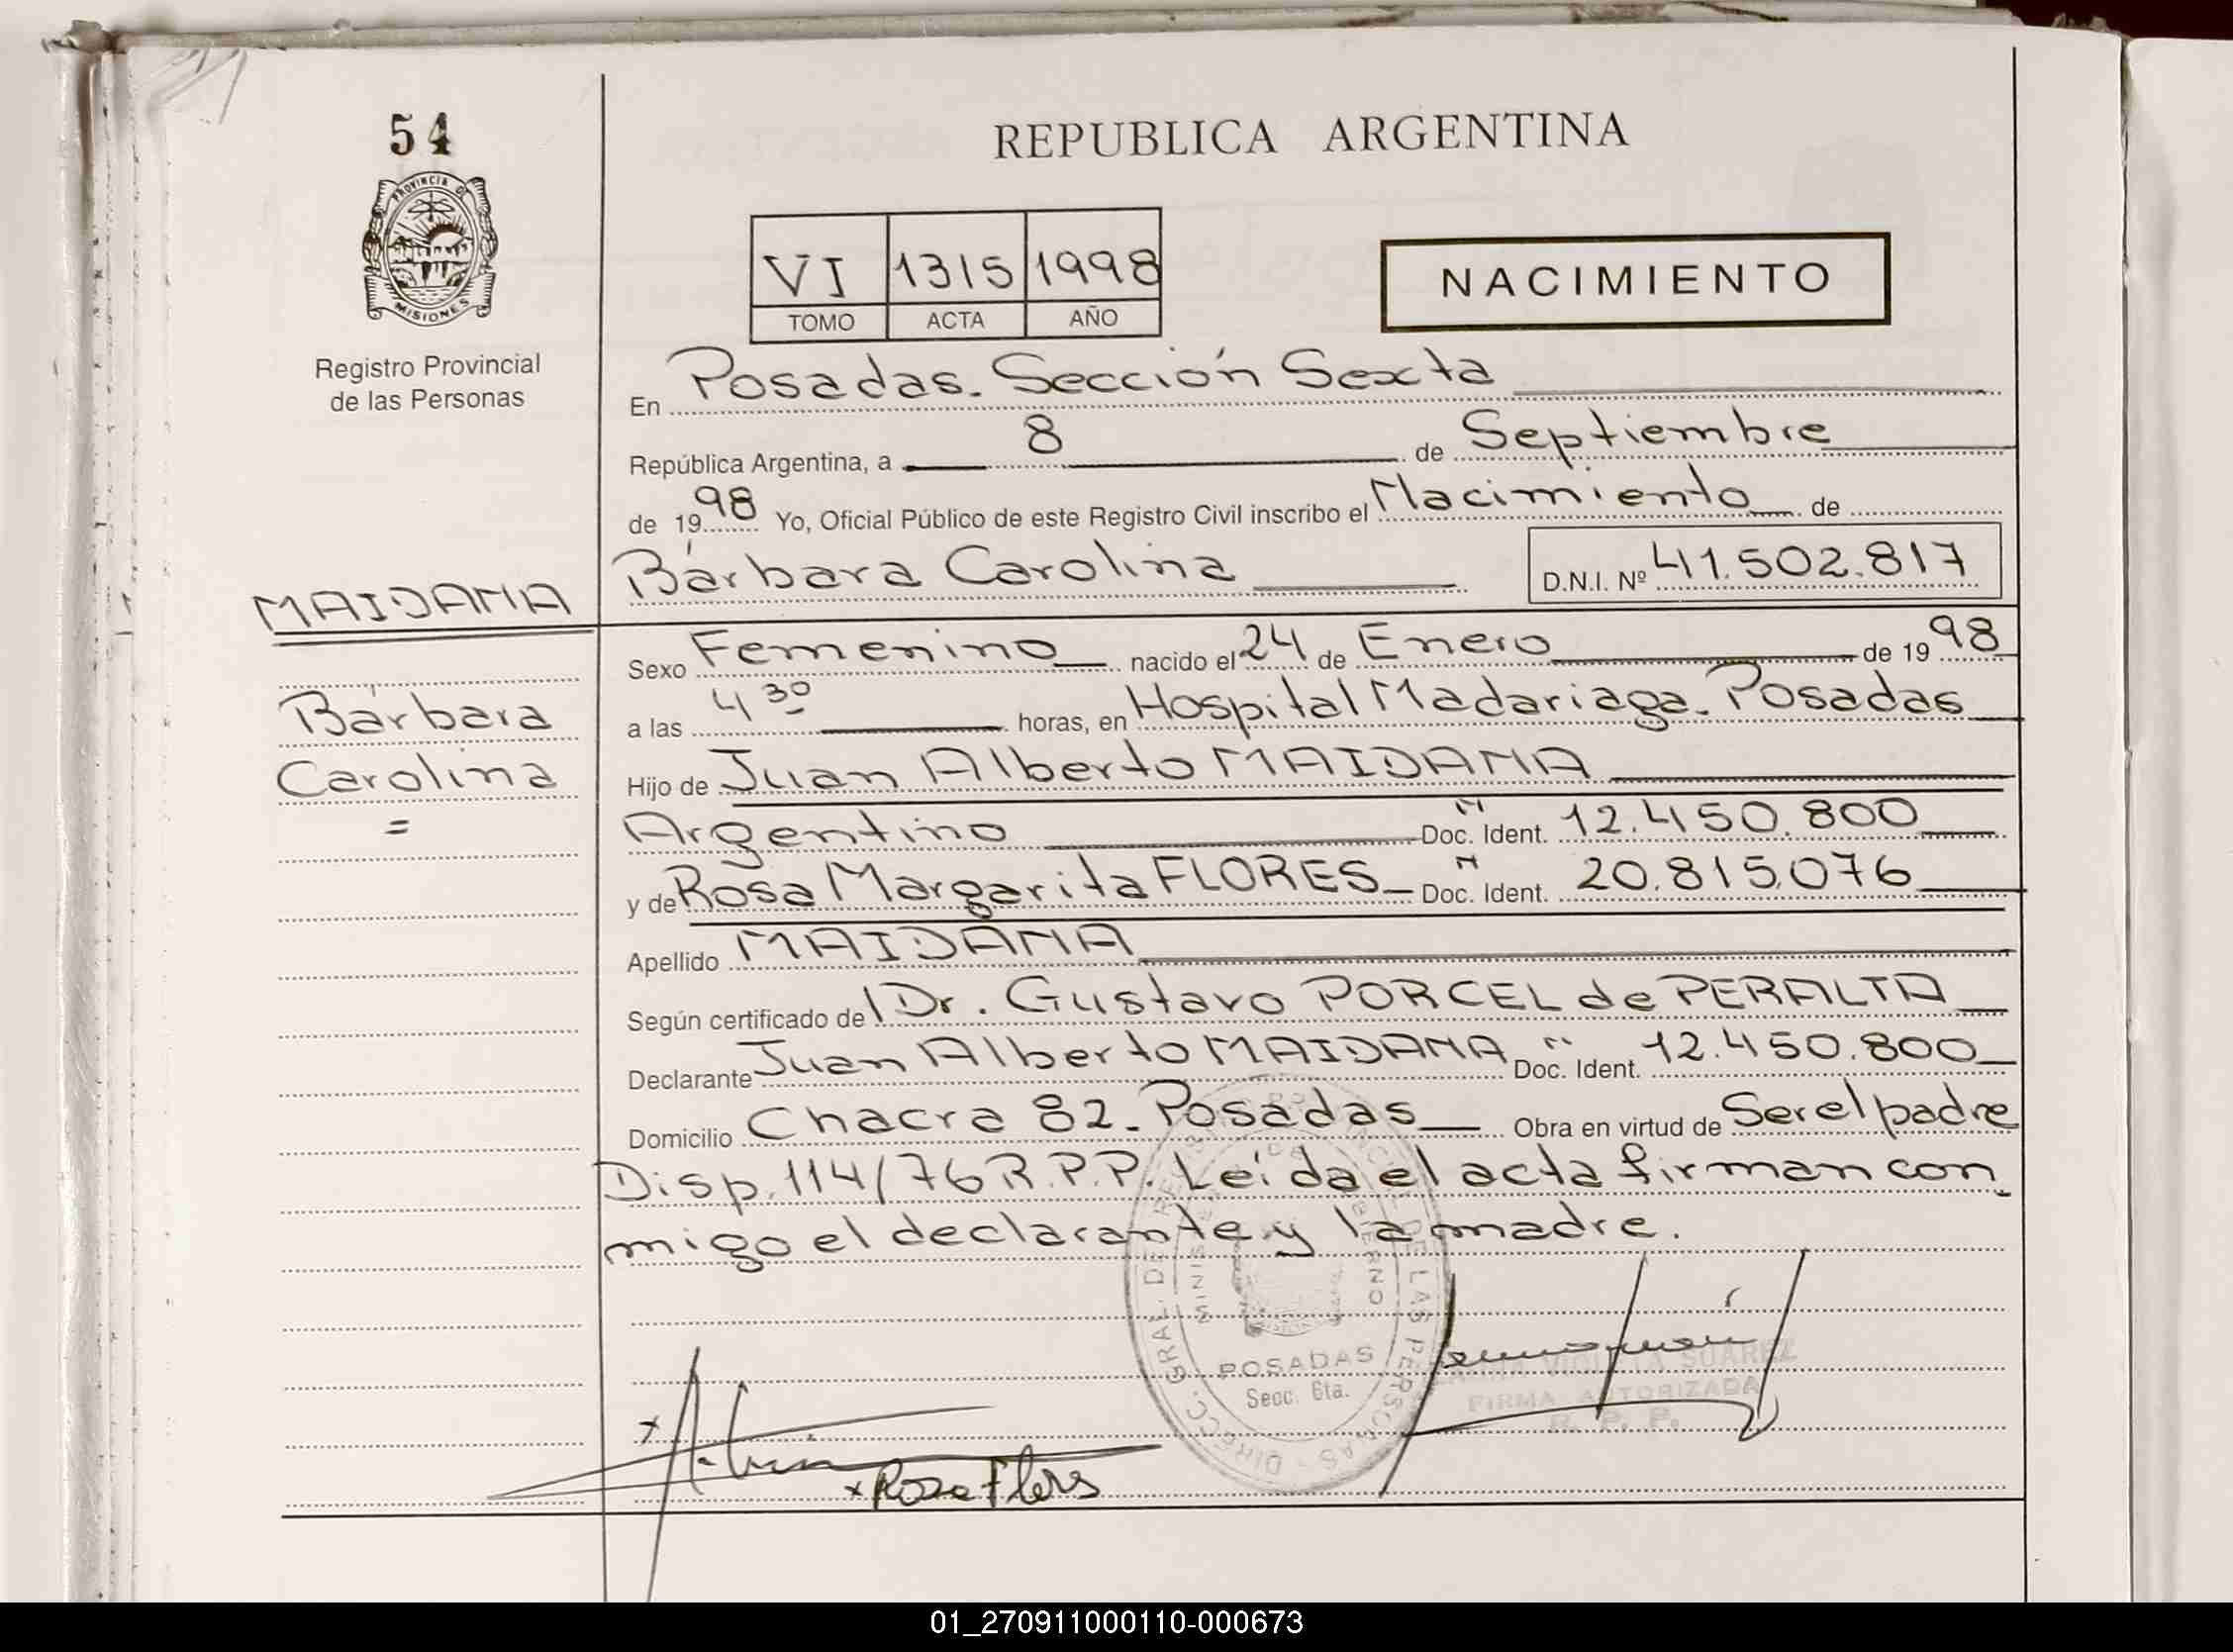 54
PROVINCIA DE
MISIONES
Registro Provincial
de las Personas
REPUBLICA ARGENTINA
VI 1315 1998
TOMO ACTA AÑO
NACIMIENTO
En Posadas. Sección Sexta
República Argentina, a 8 de Septiembre
de 1998 Yo, Oficial Público de este Registro Civil inscribo el Nacimiento de
Bárbara Carolina D.N.I. Nº 41.502.817
MAIDANA
Bárbara
Carolina
=
Sexo Femenino nacido el 24 de Enero de 1998
a las 4 30 horas, en Hospital Madariaga. Posadas
Hijo de Juan Alberto MAIDANA
Argentino Doc. Ident. 12.450.800
y de Rosa Margarita FLORES Doc. Ident. 20.815.076
Apellido MAIDANA
Según certificado del Dr. Gustavo PORCEL de PERALTA
Declarante Juan Alberto MAIDANA Doc. Ident. 12.450.800
Domicilio Chacra 82. Posadas Obra en virtud de Ser el padre
Disp. 114/76 R.P.P. Leída el acta firman con
migo el declarante y la madre.
DIRECC. GRAL. DE DE LAS PERSONAS
GOBIERNO
POSADAS
Secc. 6ta.
SUAREZ
FIRMA AUTORIZADA
R. P. P.
x
x Rosa Flores
01_270911000110-000673